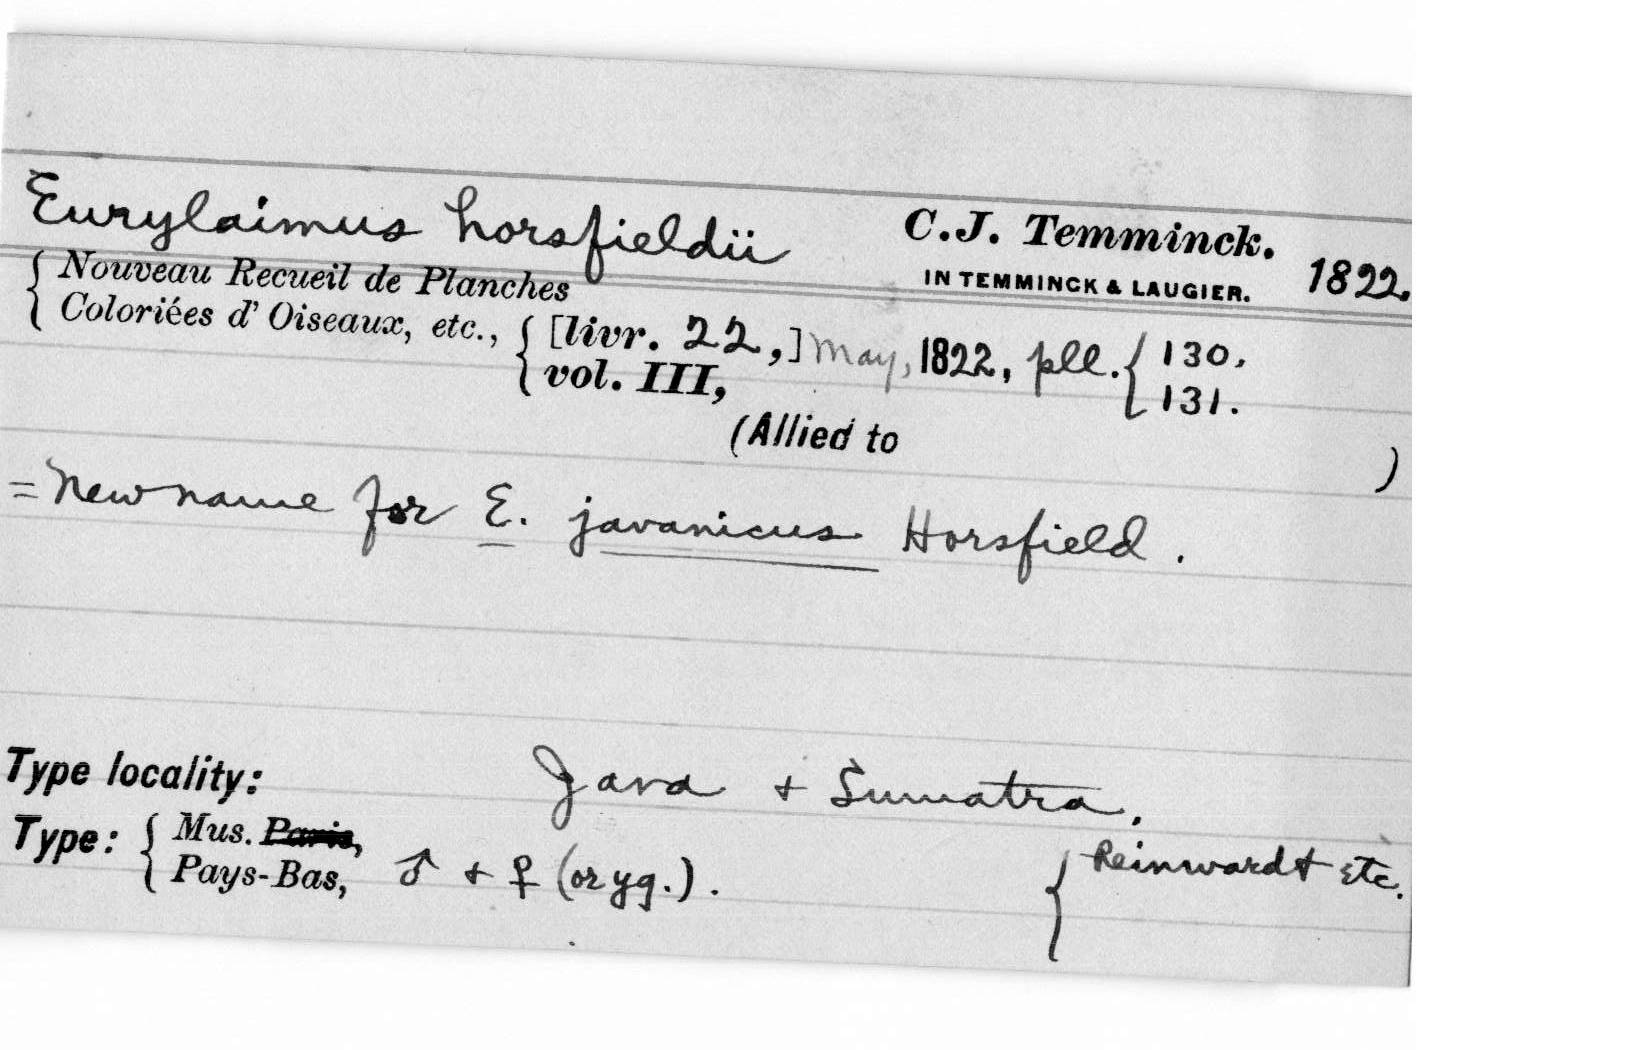 Eurylaimus horsfieldii C.J. Temminck. 1822.
IN TEMMINCK & LAUGIER.
{ Nouveau Recueil de Planches
Coloriées d' Oiseaux, etc., { [livr. 22,] May, 1822, pll. { 130,
vol. III, 131.
(Allied to )
= New name for E. javanicus Horsfield.
Type locality: Java + Sumatra.
Type: { Mus. Paris, { Reinwardt etc.
Pays-Bas, ♂ + ♀ (or yg.).